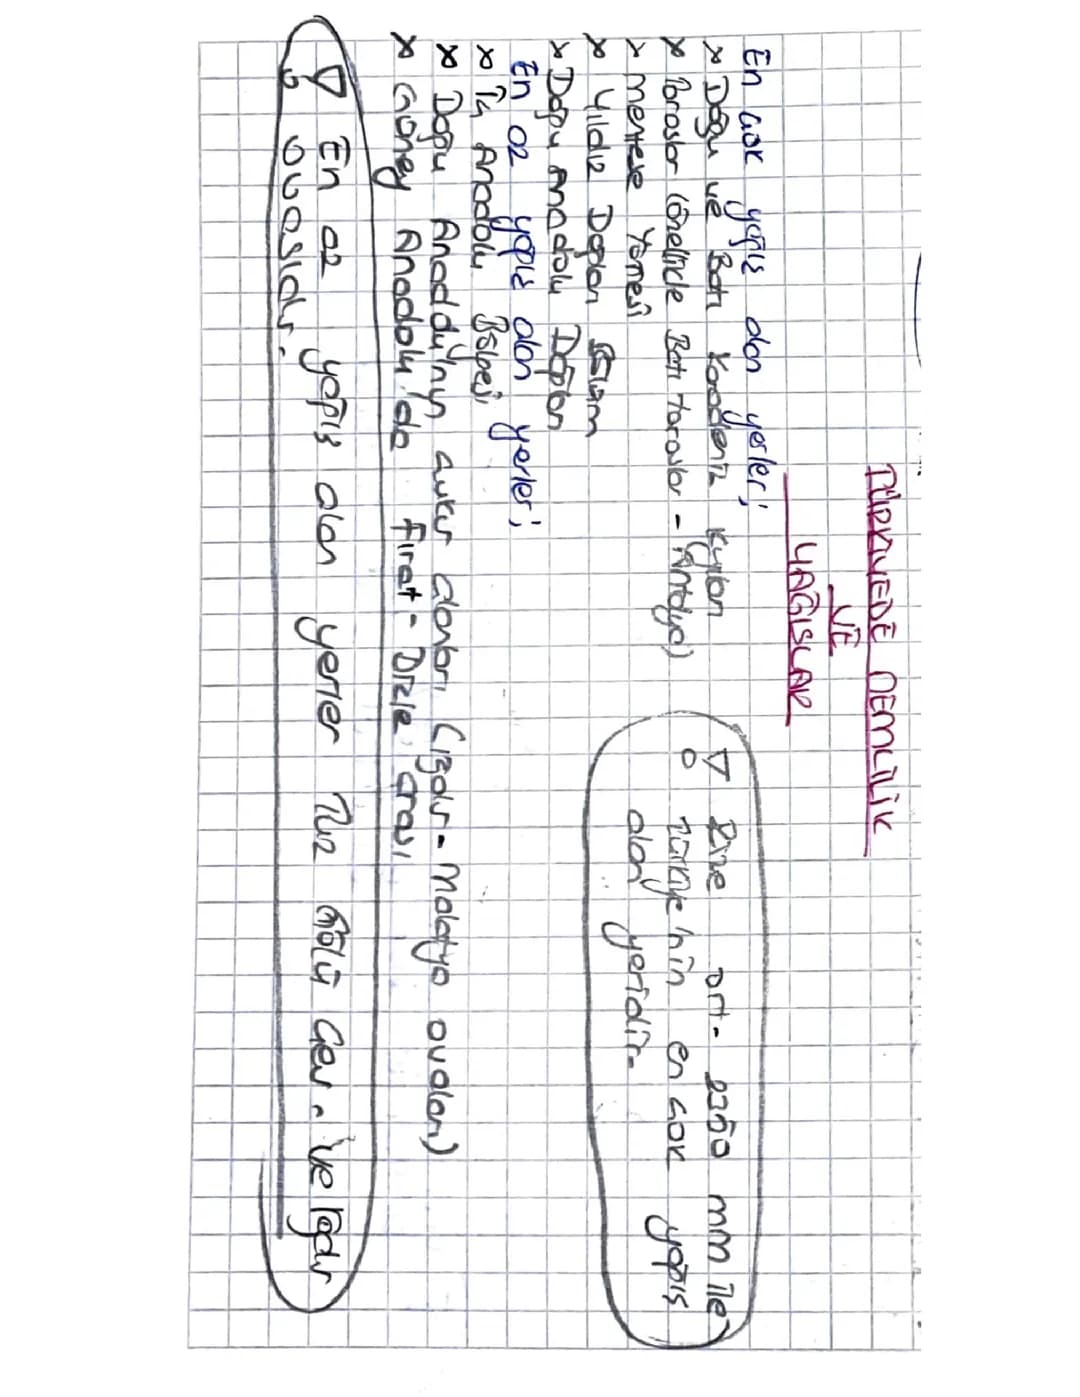 TÜRKİYEDE NEMLİLİK
VE
YAĞIŞLAR
En çok yağış alan yerler;
x Doğu ve Batı Karadeniz Kıyıları
x Toroslar (Özellikle Batı Toroslar - Antalya)
x Menteşe Yöresi
x Yıldız Dağları Bölüm
x Doğu Anadolu Dağları
Rize ort. 2300 mm ile
Türkiye'nin en çok yağış
alan yeridir.
En az yağış alan yerler;
x İç Anadolu Bölgesi
x Doğu Anadolu'nun çukur alanları (Iğdır - Malatya ovaları)
x Güney Anadolu'da Fırat - Dicle arası
En az yağış alan yerler Tuz Gölü Çev. ve Iğdır
ovasıdır.